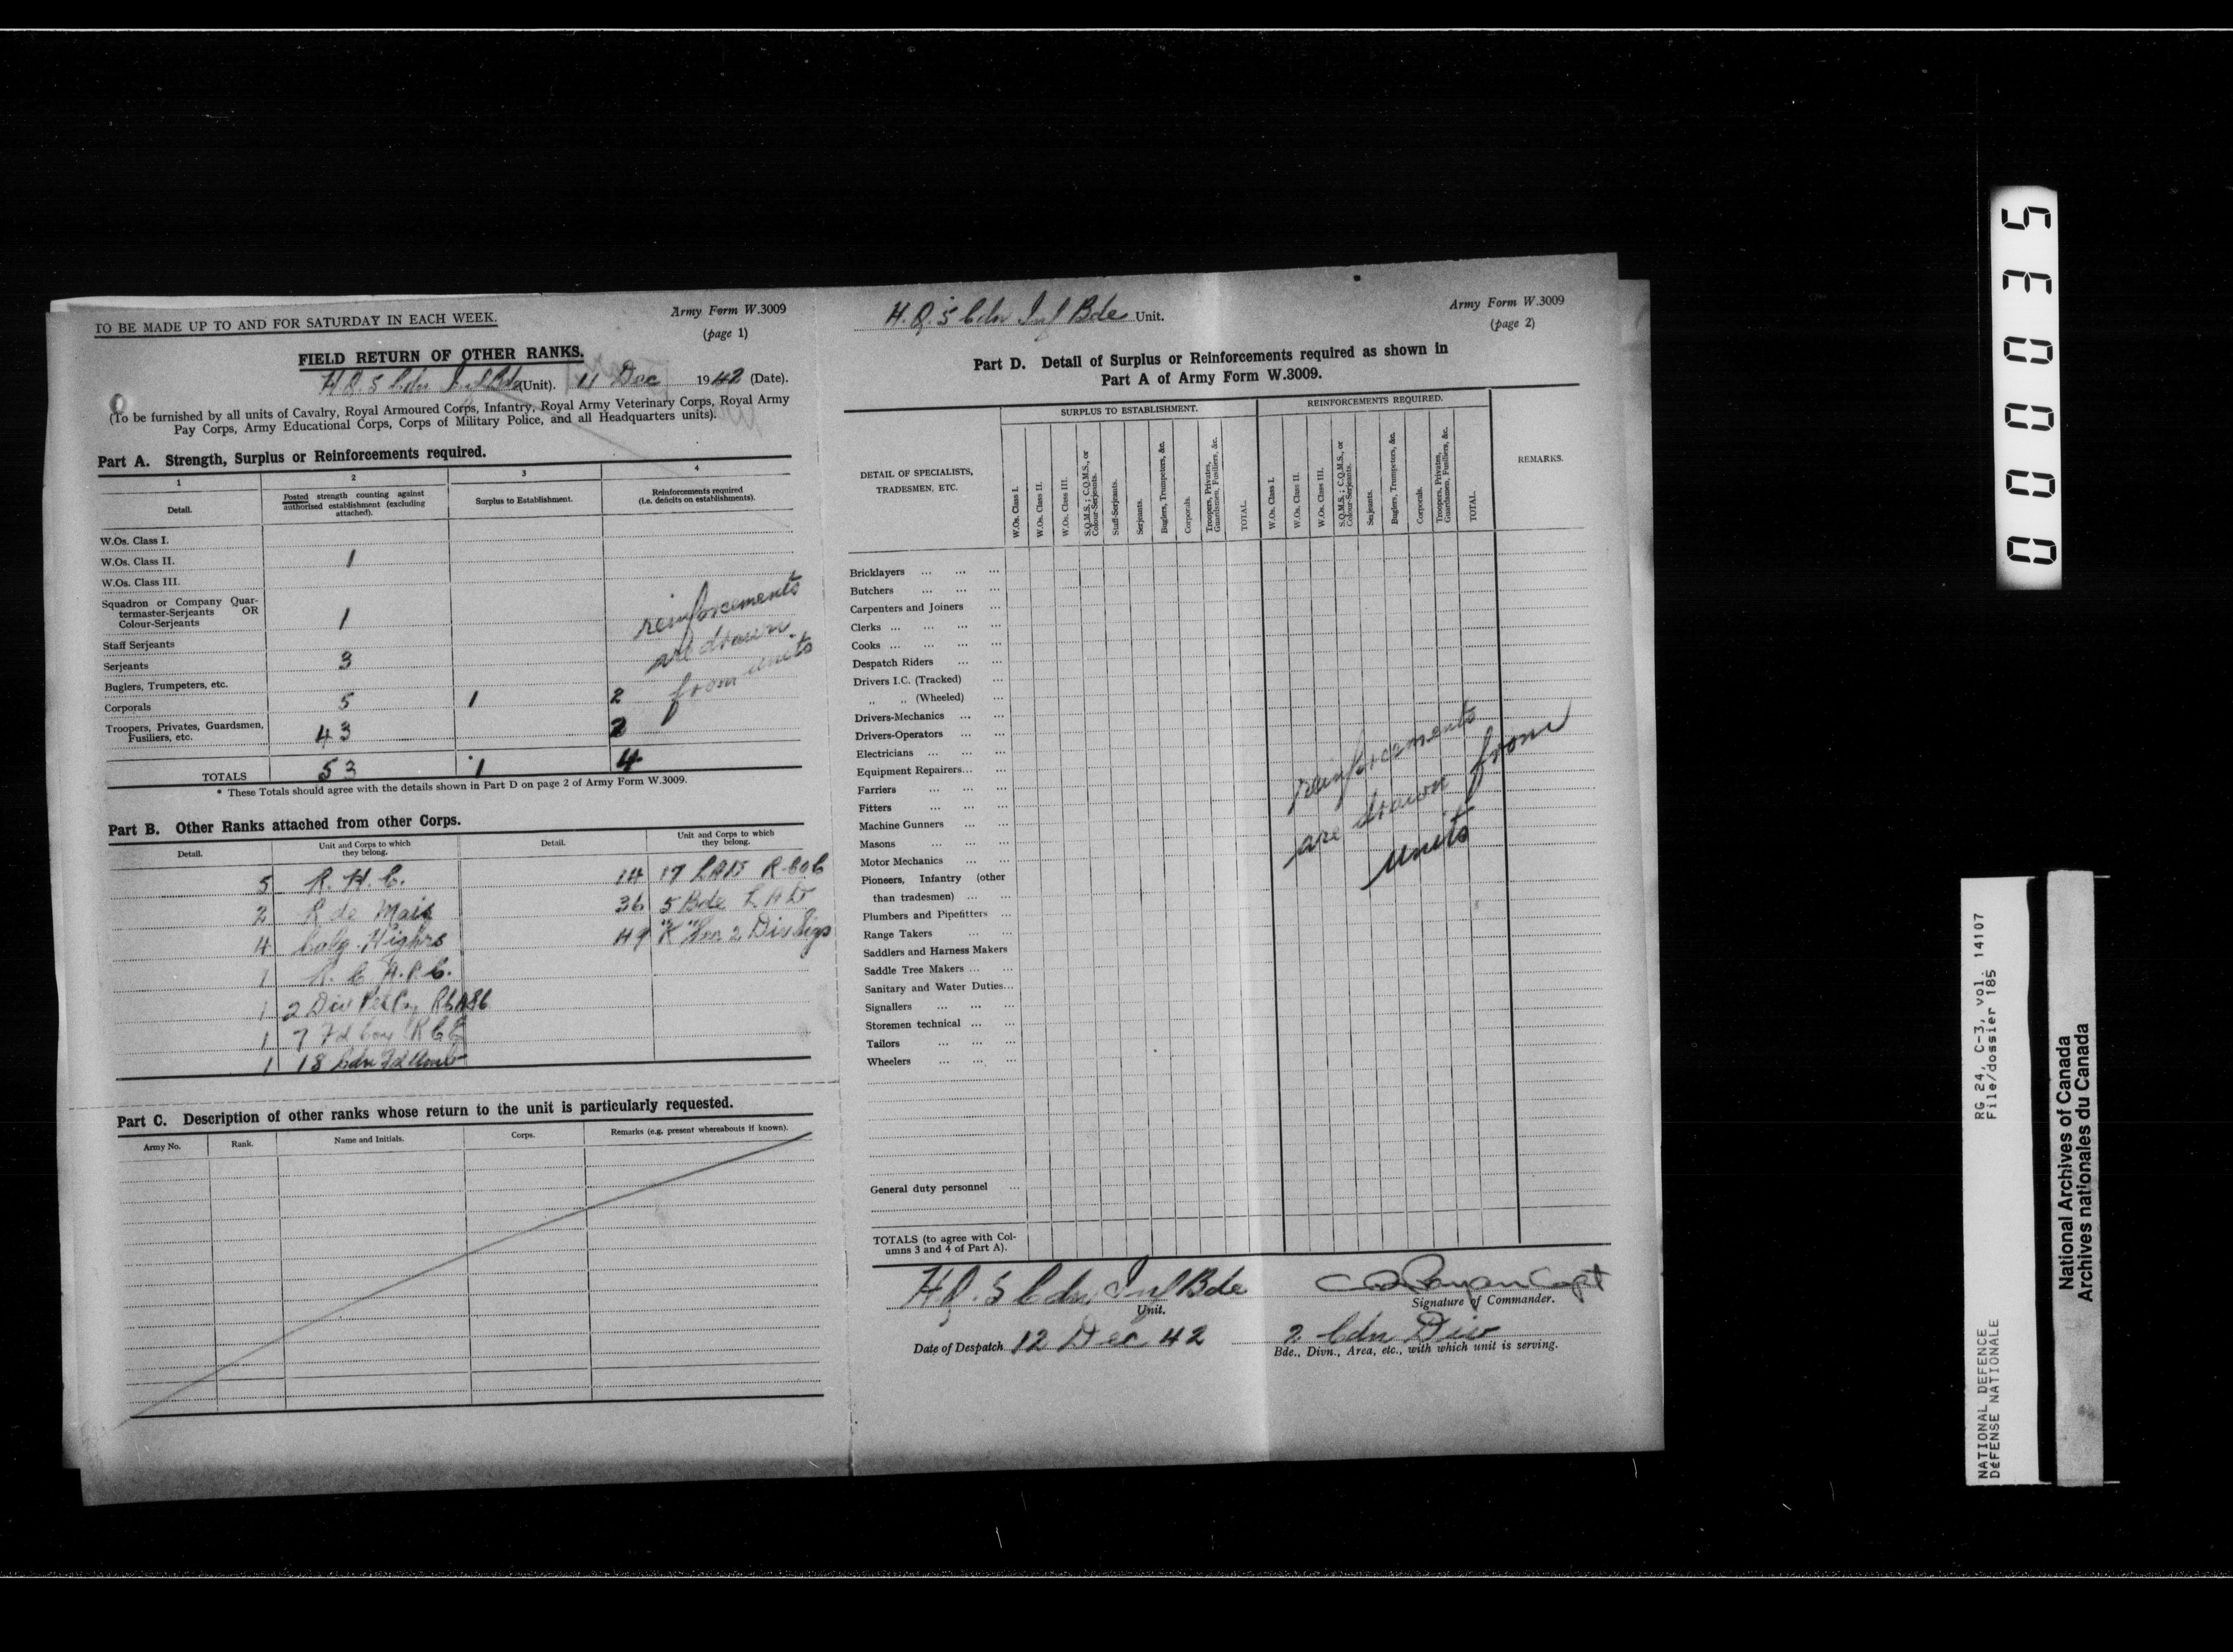 TO BE MADE UP TO AND FOR SATURDAY IN EACH WEEK.
Army Form W.3009
(page 1)
FIELD RETURN OF OTHER RANKS.
H.Q. 5 Cdn Inf Bde (Unit). 11 Dec 1942 (Date).
(To be furnished by all units of Cavalry, Royal Armoured Corps, Infantry, Royal Army Veterinary Corps, Royal Army
Pay Corps, Army Educational Corps, Corps of Military Police, and all Headquarters units).
Part A. Strength, Surplus or Reinforcements required.
1 2 3 4
Detail.
Posted strength counting against
authorised establishment (excluding
attached).
Surplus to Establishment.
Reinforcements required
(i.e. deficits on establishments).
W.Os. Class I.
W.Os. Class II. 1
W.Os. Class III.
Squadron or Company Quar-
termaster-Serjeants OR
Colour-Serjeants 1
Staff Serjeants
Serjeants 3
Buglers, Trumpeters, etc.
Corporals 5 1 2
Troopers, Privates, Guardsmen,
Fusiliers, etc. 43 2
TOTALS 53 1 4
reinforcements
are drawn
from units
* These Totals should agree with the details shown in Part D on page 2 of Army Form W.3009.
Part B. Other Ranks attached from other Corps.
Detail.
Unit and Corps to which
they belong.
Detail.
Unit and Corps to which
they belong.
5 R.H.C. 14 17 LAD RCOC
2 R de Mais 36 5 Bde LAD
4 Calg. Highrs 49 "K" Sec 2 Div Sigs
1 R.C.A.P.C.
1 2 Div Pet Coy RCASC
1 7 Fd Coy RCE
1 18 Cdn Fd Amb
Part C. Description of other ranks whose return to the unit is particularly requested.
Army No. Rank. Name and Initials. Corps. Remarks (e.g. present whereabouts if known).
H.Q. 5 Cdn Inf Bde Unit.
Army Form W.3009
(page 2)
Part D. Detail of Surplus or Reinforcements required as shown in
Part A of Army Form W.3009.
DETAIL OF SPECIALISTS,
TRADESMEN, ETC.
SURPLUS TO ESTABLISHMENT.
W.Os. Class I.
W.Os. Class II.
W.Os. Class III.
S.Q.M.S.; C.Q.M.S., or
Colour-Serjeants.
Staff-Serjeants.
Serjeants.
Buglers, Trumpeters, &c.
Corporals.
Troopers, Privates,
Guardsmen, Fusiliers, &c.
TOTAL.
REINFORCEMENTS REQUIRED.
W.Os. Class I.
W.Os. Class II.
W.Os. Class III.
S.Q.M.S.; C.Q.M.S., or
Colour-Serjeants.
Serjeants.
Buglers, Trumpeters, &c.
Corporals.
Troopers, Privates,
Guardsmen, Fusiliers, &c.
TOTAL.
REMARKS.
Bricklayers ... ... ...
Butchers ... ... ...
Carpenters and Joiners ...
Clerks ... ... ... ...
Cooks ... ... ... ...
Despatch Riders ... ...
Drivers I.C. (Tracked) ...
„ „ (Wheeled) ...
Drivers-Mechanics ... ...
Drivers-Operators ... ...
Electricians ... ... ...
Equipment Repairers... ...
Farriers ... ... ...
Fitters ... ... ...
Machine Gunners ... ...
Masons ... ... ...
Motor Mechanics ... ...
Pioneers, Infantry (other
than tradesmen) ... ...
Plumbers and Pipefitters ...
Range Takers ... ...
Saddlers and Harness Makers
Saddle Tree Makers ... ...
Sanitary and Water Duties...
Signallers ... ... ...
Storemen technical ... ...
Tailors ... ... ...
Wheelers ... ... ...
reinforcements
are drawn from
units
General duty personnel ...
TOTALS (to agree with Col-
umns 3 and 4 of Part A).
H.Q. 5 Cdn. Inf Bde
Unit.
Capt
Signature of Commander.
Date of Despatch 12 Dec 42
2 Cdn Div
Bde., Divn., Area, etc., with which unit is serving.
000035
NATIONAL DEFENCE RG 24, C-3, vol. 14107
DéFENSE NATIONALE File/dossier 185
National Archives of Canada
Archives nationales du Canada